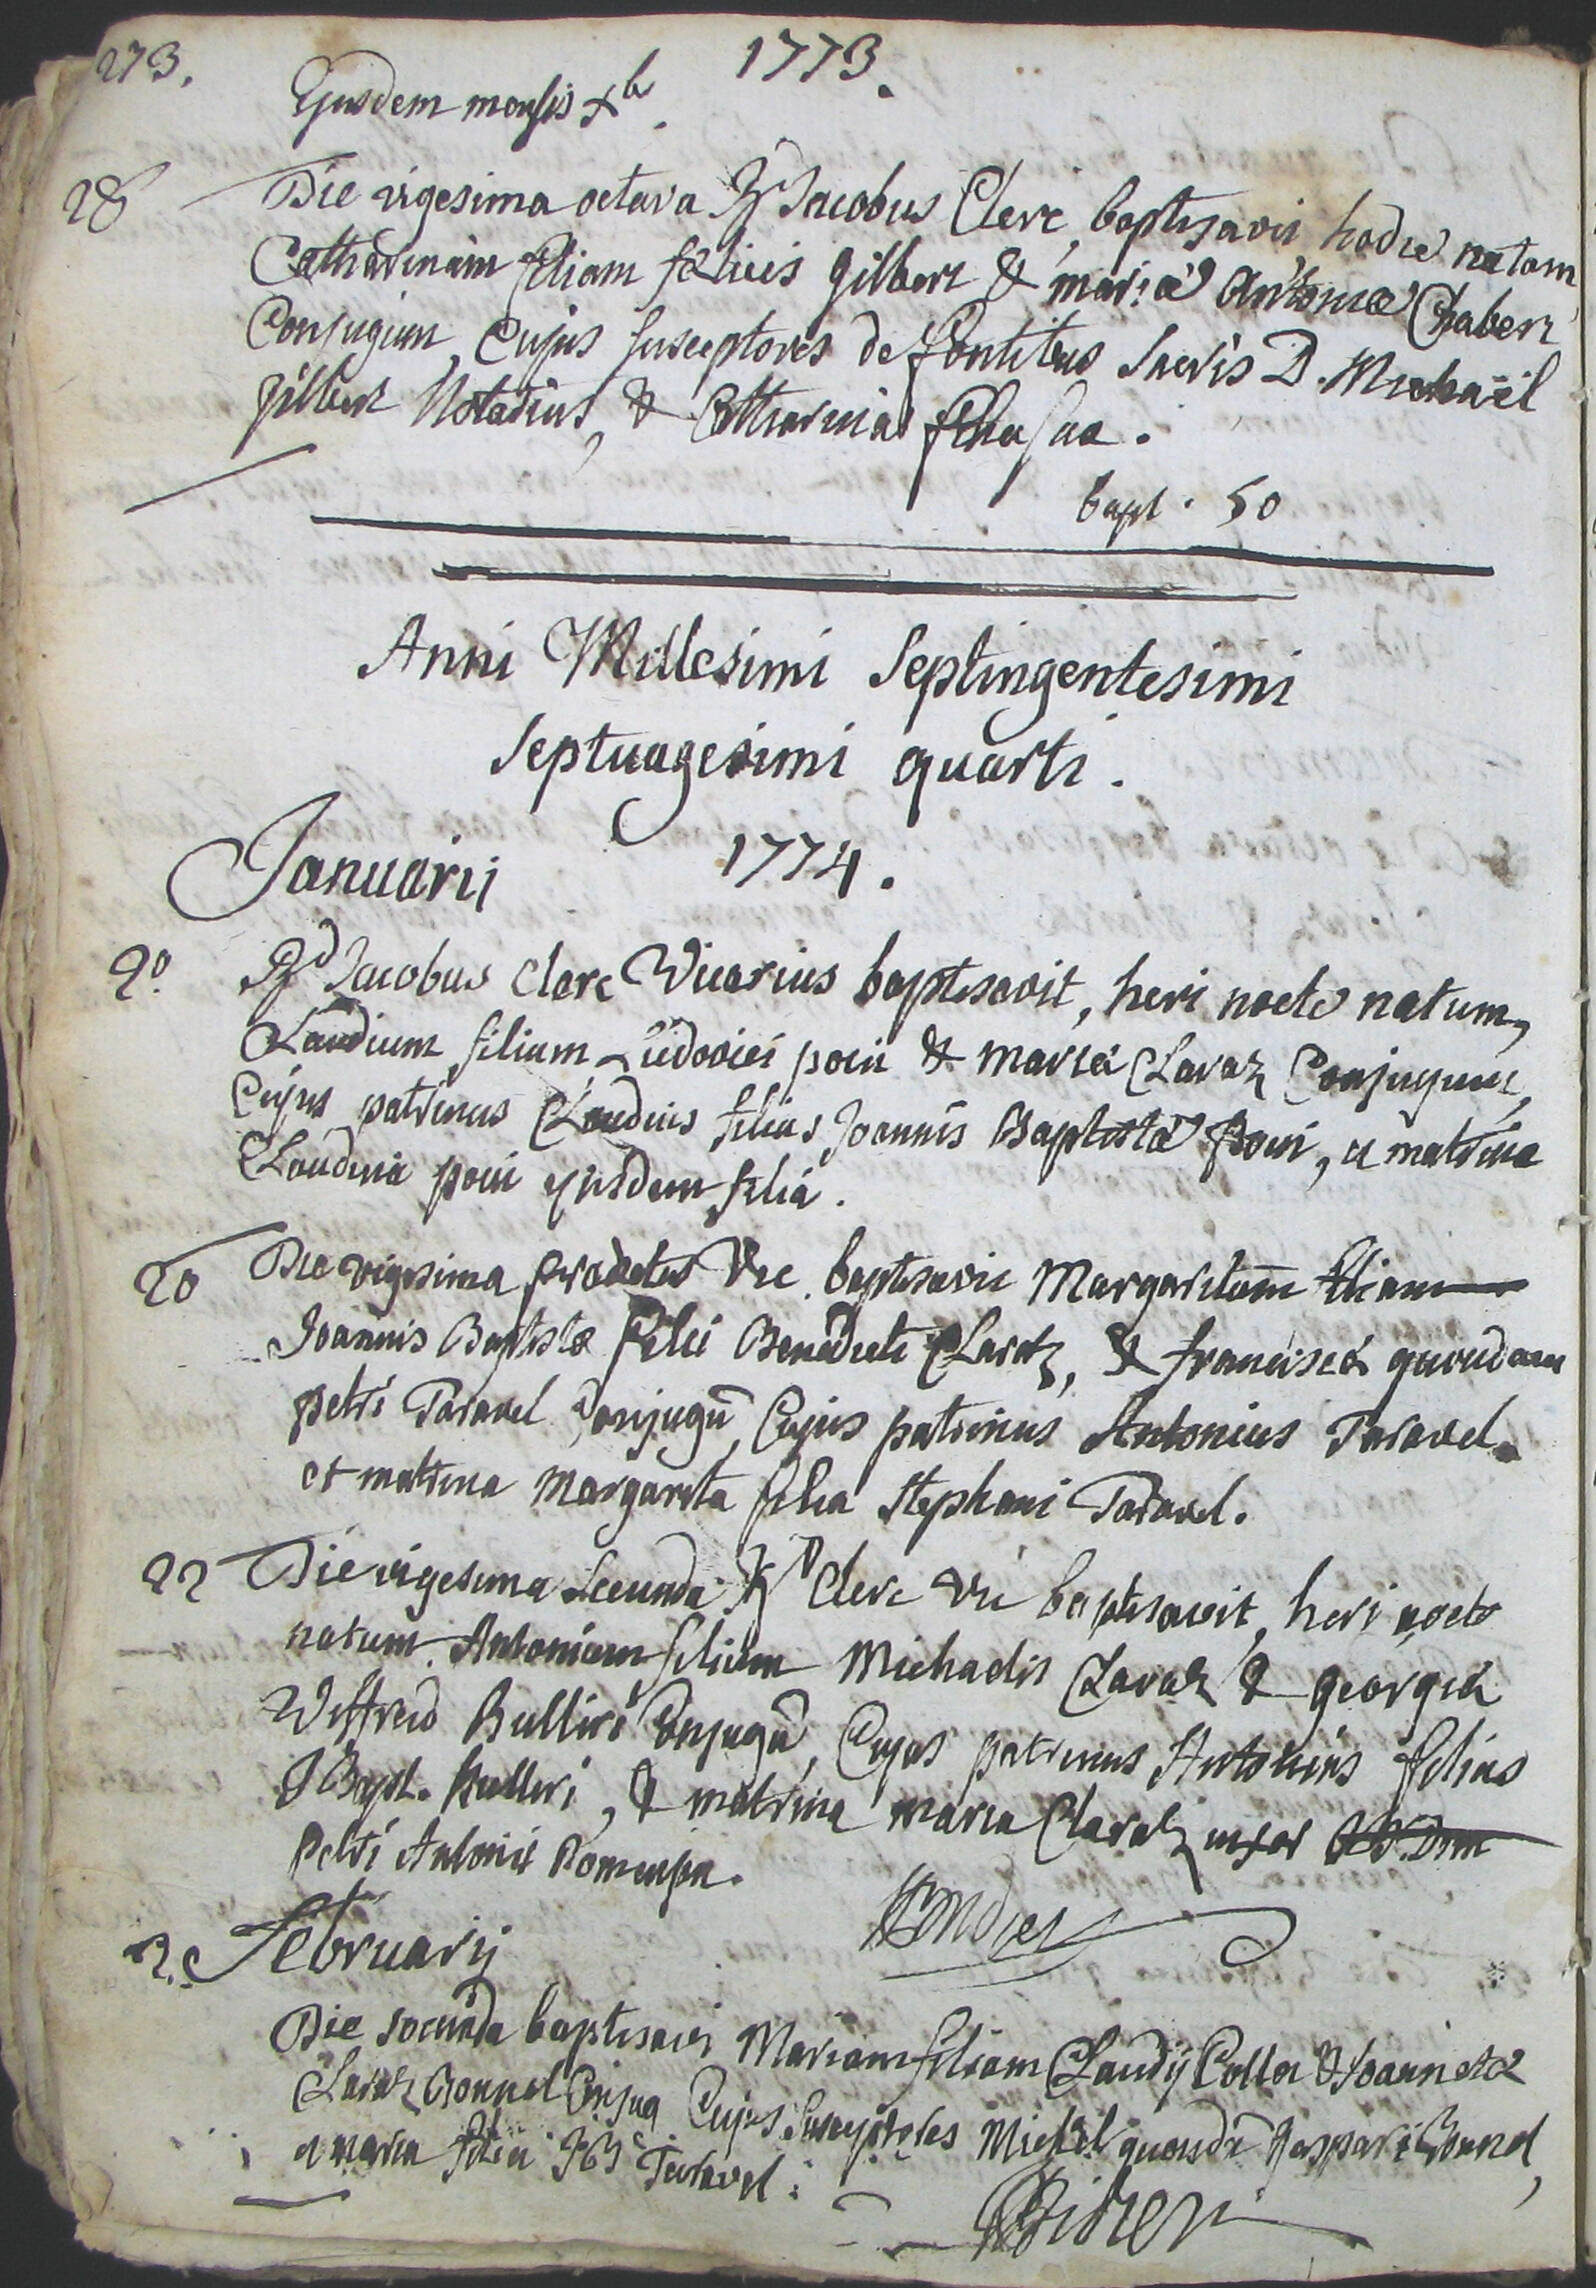 273. 1773.
Ejusdem mensis xbr.
28 Die vigesima octava Rd Jacobus Clerc, baptisavit hodie natam
Catharinam filiam felicis Gilbert & mariæ Antoniæ Chabert
Conjugum, Cujus susceptores de fontibus sacris D. Michaël
gilbert Notarius, & Catharina filia sua.
bapt. 50
Anni Millesimi Septingentesimi
Septuagesimi quarti.
Januarii 1774.
2º Rd Jacobus Clerc Vicarius baptisavit, heri nocte natum,
Claudium filium Ludovici poin & mariæ Claraz Conjugum,
Cujus patrinus Claudius filius Joannis Baptistæ Poin, et matrina
Claudina poin ejusdem filia.
20 Die vigesima prædictus Vic. baptisavit Margaritam filiam
Joannis Baptistæ filii Benedicti Claraz, & franciscæ quondam
petri Taravel Conjugū, Cujus patrinus Antonius Taravel
et matrina Margarita filia Stephani Taravel.
22 Die vigesima secunda Rd Clerc Vic baptisavit, heri nocte
natum Antonium filium Michaelis Claraz & georgiæ
Rulliri Conjugū, Cujus patrinus Antonius filius
J Bapt. Rulliri, & matrina maria Claraz uxor
Petri Antonii
2. Februarij
Die secunda baptisavi Mariam filiam Claudij Collet & Joannetæ
Claraz Bonnel Conjug Cujus Susceptores Michel quondā gaspari Bonnel,
et maria filia JBæ Taravel.